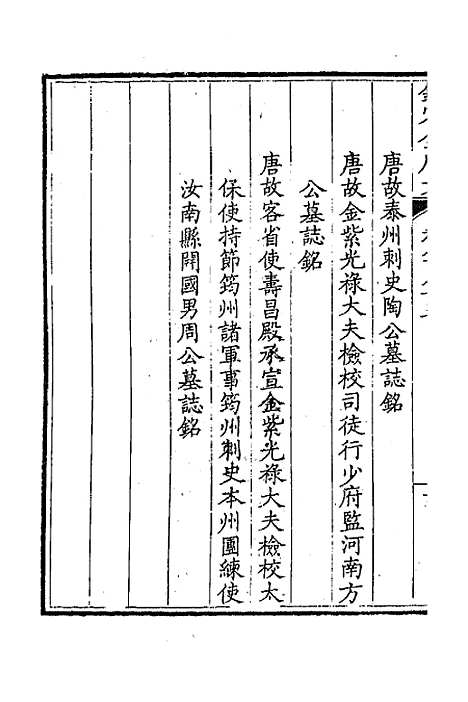 唐故泰州刺史陶公墓誌銘
唐故金紫光祿大夫檢校司徒行少府監河南方
公墓誌銘
唐故客省使壽昌殿承宣金紫光祿大夫檢校太
保使持節筠州諸軍事筠州刺史本州團練使
汝南縣開國男周公墓誌銘